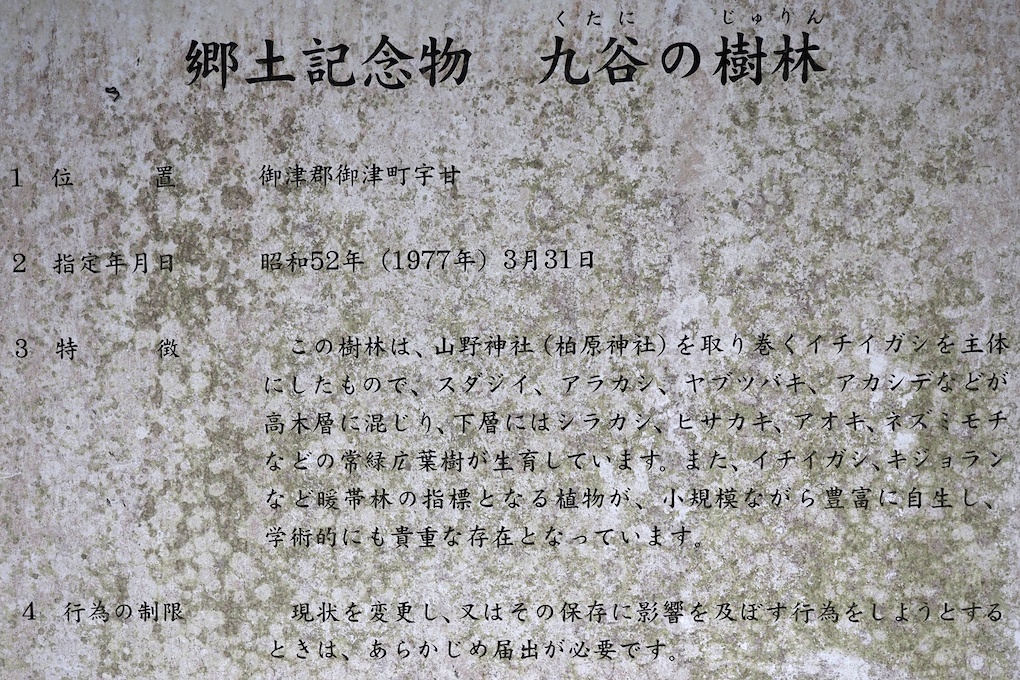 くたに じゅりん
郷土記念物 九谷の樹林
1 位置 御津郡御津町宇甘
2 指定年月日 昭和52年（1977年）3月31日
3 特徴 この樹林は、山野神社（柏原神社）を取り巻くイチイガシを主体
にしたもので、スダジイ、アラカシ、ヤブツバキ、アカシデなどが
高木層に混じり、下層にはシラカシ、ヒサカキ、アオキ、ネズミモチ
などの常緑広葉樹が生育しています。また、イチイガシ、キジョラン
など暖帯林の指標となる植物が、小規模ながら豊富に自生し、
学術的にも貴重な存在となっています。
4 行為の制限 現状を変更し、又はその保存に影響を及ぼす行為をしようとする
ときは、あらかじめ届出が必要です。